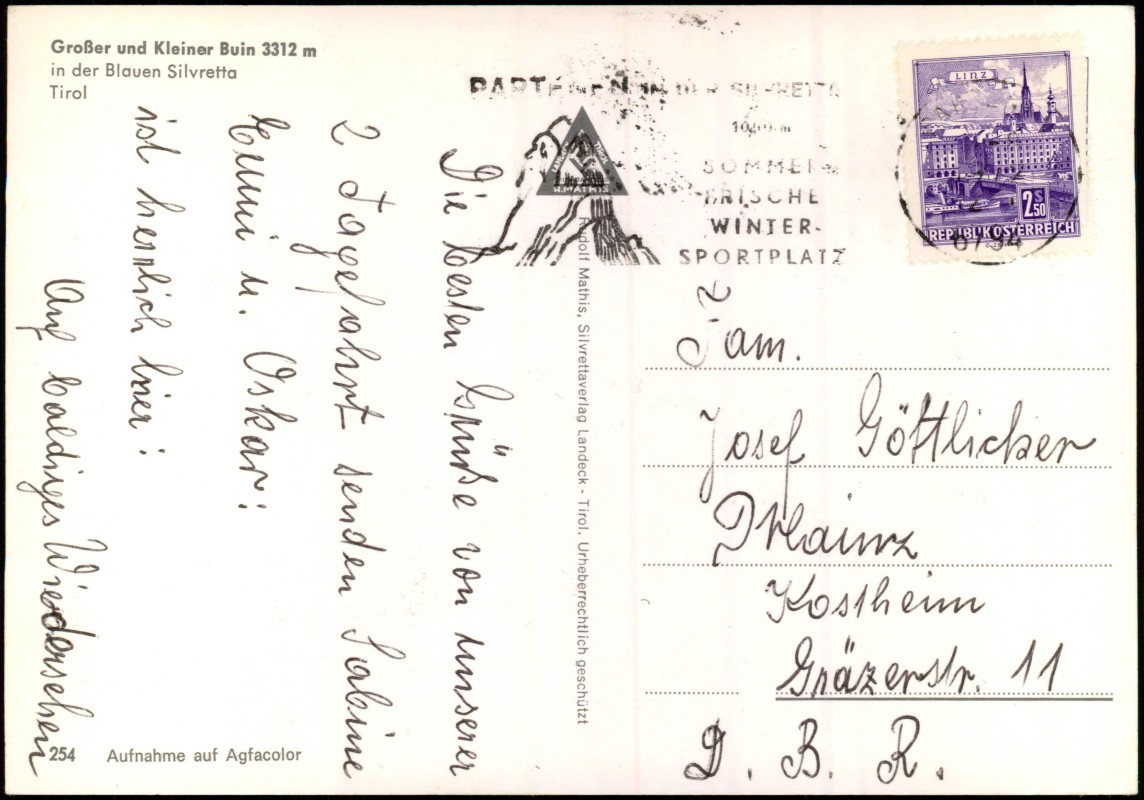 Großer und Kleiner Buin 3312 m
in der Blauen Silvretta
Tirol
Die besten Grüße von unserer
2 Tagefahrt senden Sabine
Emmi u. Oskar!
ist herrlich hier!
Auf baldiges Wiedersehen
254 Aufnahme auf Agfacolor
Rudolf Mathis, Silvrettaverlag Landeck - Tirol. Urheberrechtlich geschützt
R.MATHIS
PARTENEN IN DER SILVRETTA
SOMMER-
FRISCHE
WINTER-
SPORTPLATZ
LINZ
2 S 50
REPUBLIK ÖSTERREICH
Fam.
Josef Göttlicher
Mainz
Kostheim
Gräzerstr. 11
D. B. R.